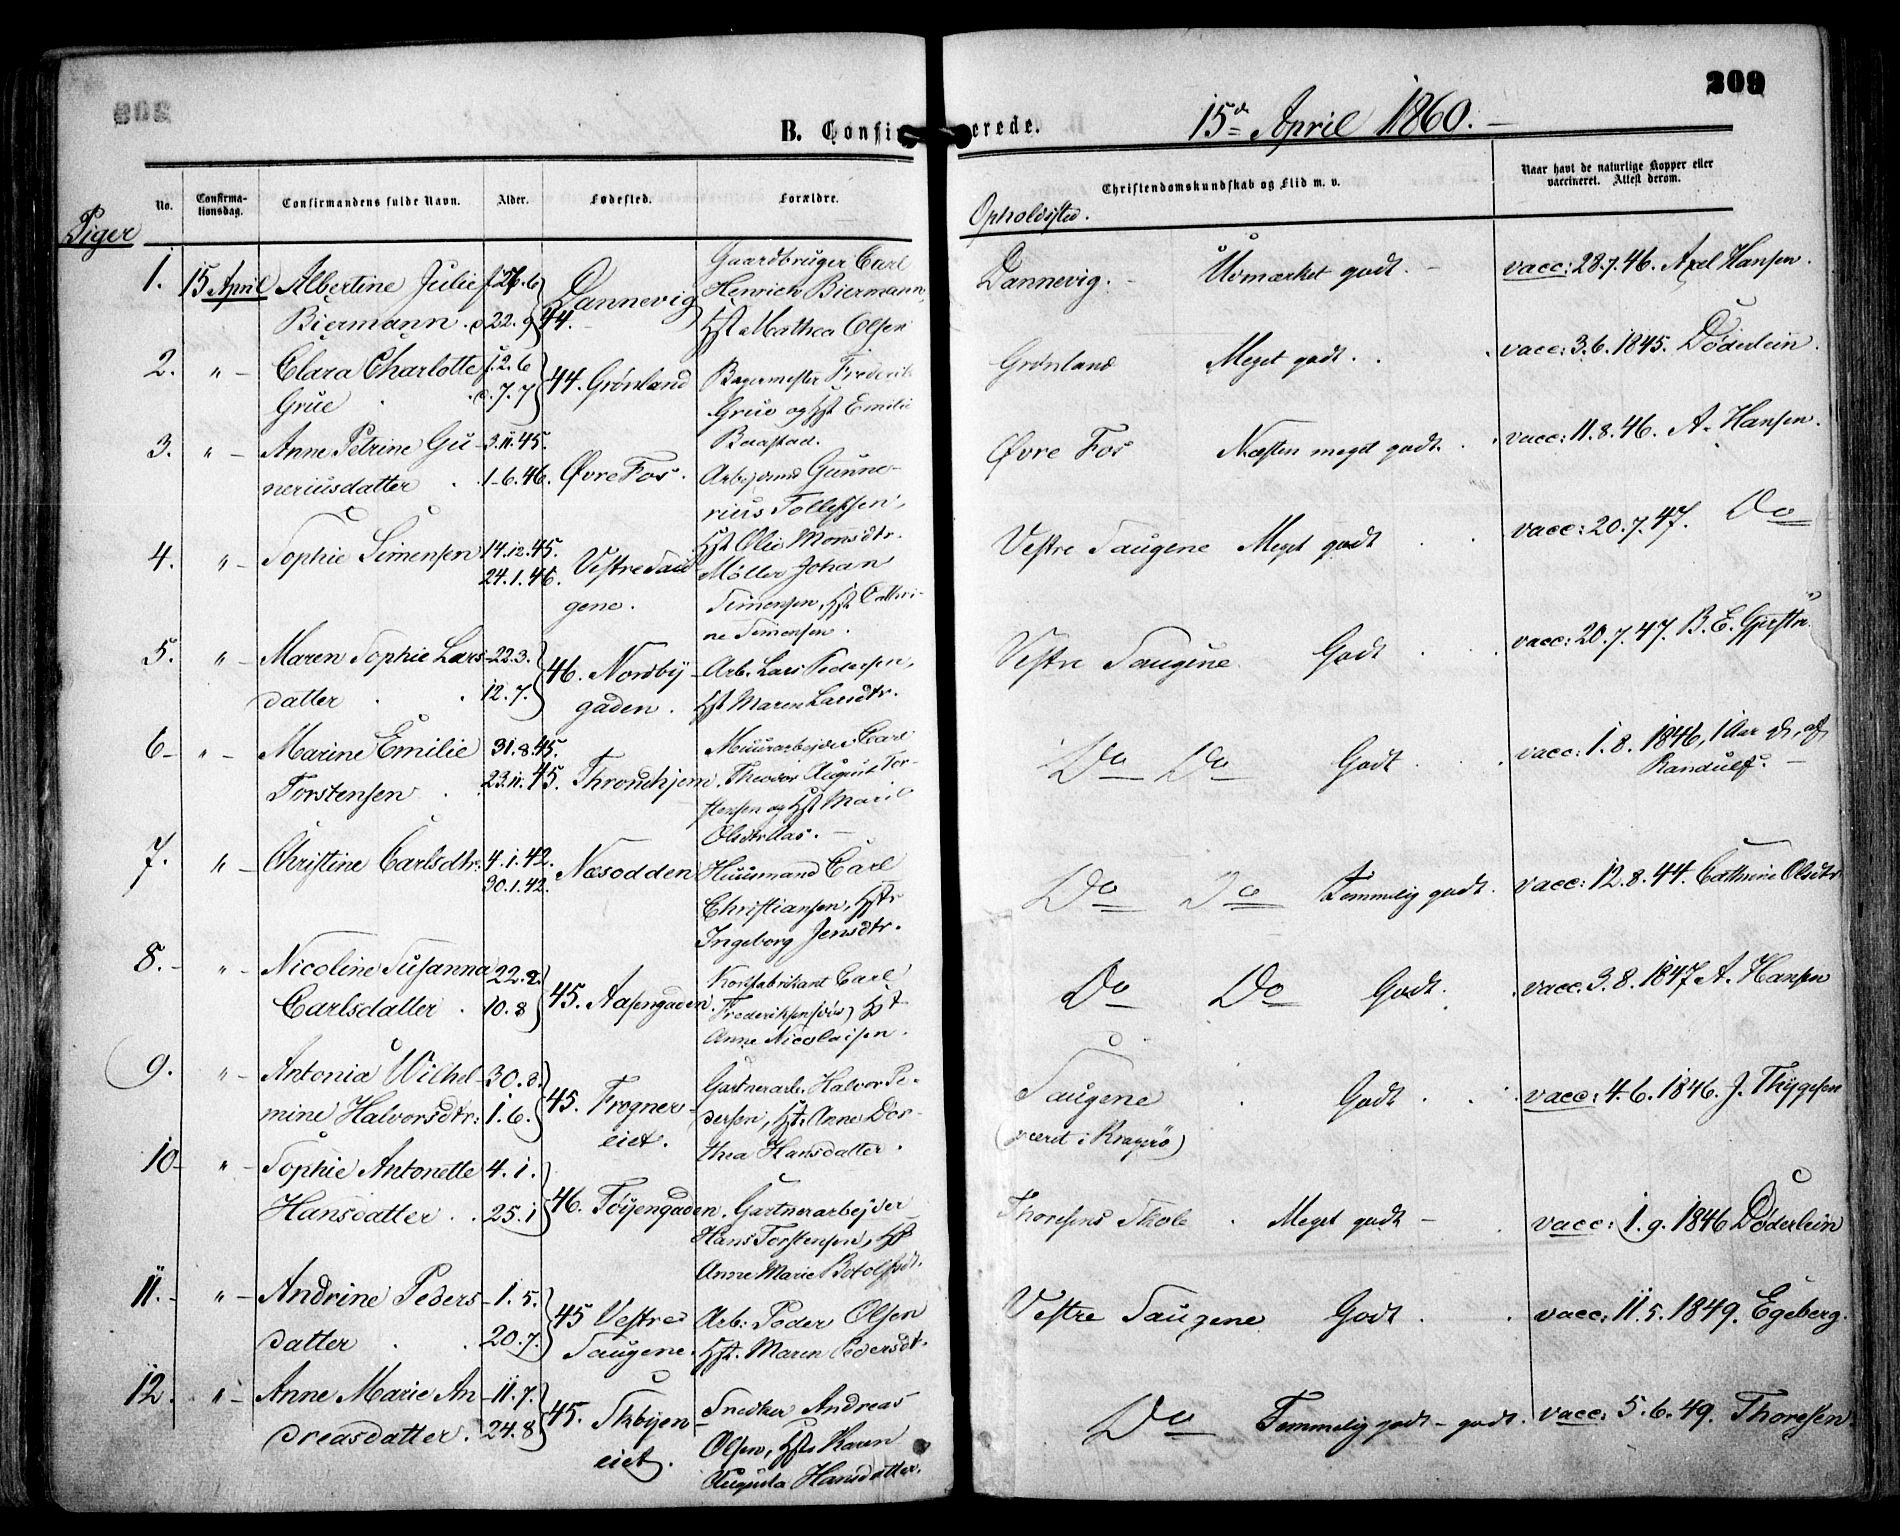 209
B. Confirmerede.
15de April 1860.
No.
Confirma-
tionsdag.
Confirmandens fulde Navn.
Alder.
Fødested.
Forældre.
Christendomskundskab og Flid m. v.
Naar havt de naturlige Kopper eller
vaccineret. Attest derom.
Piger
Opholdssted.
1. 15 April Albertine Julie f. 26.6 Dannevig Gaardbruger Carl
Biermann. d. 22.9 44. Henrich Biermann,
Hst Mathea Olsen
Dannevig. Udmærket godt. vacc: 28.7.46. Axel Hansen.
2. " Clara Charlotte f. 2.6 44. Grønland Bagermester Frederik
Grue d. 7.7 Grue og Hst Emilie
Grønland Meget godt. vacc: 3.6.1845. Døderlein.
3. " Anne Petrine Gu- 3.11.45. Øvre Fos. Arbejdsmd Gunne-
neriusdatter 1.6.46. rius Tollefsen,
Hst Olia Monsdtr.
Øvre Fos Næsten meget godt. vacc: 11.8.46. A. Hansen.
4. " Sophie Simensen 14.12.45. Vestre Sau Møller Johan
24.1.46. gene. Simensen, Hst Cathri-
ne Simensen.
Vestre Saugene Meget godt vacc: 20.7.47. Do
5. " Maren Sophie Lars 22.3. 46. Nordby Arb. Lars Pedersen,
datter 12.7. gaden. Hst Maren Larsdtr.
Vestre Saugene. Godt vacc: 20.7.47. B. E.
6 " Marine Emilie 31.8.45. Throndhjem. Muurarbejder Carl
Torstensen 23.11.45. Theodor August Tor-
stensen og Hst Maril
Do Do Godt vacc: 1.8.1846, 1 Aar
Randulf.
7. " Christine Carlsdtr. 4.1.42. Næsodden Huusmand Carl
30.1.42. Christiansen, Hst
Ingeborg Jensdtr.
Do Do Temmelig godt. vacc: 12.8.44. Cathrine Olsdtr.
8. " Nicoline Susanna 22.2. 45. Aasengaden. Carl
Carlsdatter 10.8 Hst
Anne Nicolaisen.
Do Do Godt. vacc. 3.8.1847 A. Hansen
9. " Antonia Wilhel- 30.3. 45. Frogner- Gartnerarb. Halvor Pe-
mine Halvorsdtr: 1.6. eiet. dersen, Hst. Anne Dor-
thea Hansdatter.
Saugene Godt vacc: 4.6.1846. J. Thygesen
(været i Kragerø)
10 " Sophie Antonette 4.1. 46. Tøyengaden. Gartnerarbejder
Hansdatter 25.1 Hans Torstensen, Hst
Anne Marie Botolfsdt.
Thoresens Skole Meget godt vacc: 1.9.1846 Døderlein
11. " Andrine Peders 1.5. 45 Vestre Arb: Peder Olsen
datter 20.7. Saugene. Hst. Maren Pedersdt.
Vestre Saugene Godt vacc: 11.5.1849. Egeberg.
12. " Anne Marie An 11.7. 45. Skøyen Snedker Andreas
dreasdatter. 24.8 eiet. Olsen, Hst Karen
Augusta Hansdatter.
Do Temmelig godt - godt. vacc: 5.6.49. Thoresen.